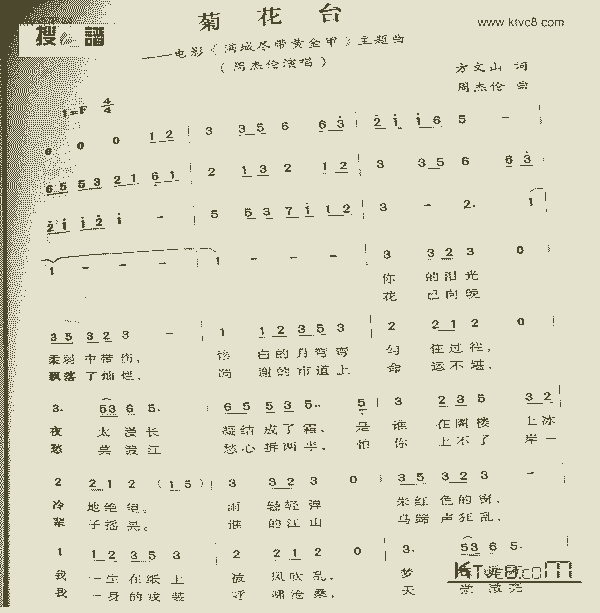 菊 花 台
www.ktvc8.com
搜 谱
——电影《满城尽带黄金甲》主题曲
(周杰伦演唱)
方文山 词
周杰伦 曲
1=F 4/4
0 0 0 1 2 | 3 3 5 6 6 3 | 2 1 1 6 5 - |
6 5 5 3 2 1 6 1 | 2 1 3 2 1 2 | 3 3 5 6 6 3 |
2 1 1 2 1 - | 5 5 3 7 1 1 2 | 3 - 2. 1 |
1 - - - | 1 - - - | 3 3 2 3 0 |
你 的泪光
花 已向晚
3 5 3 2 3 - | 1 1 2 3 5 3 | 2 2 1 2 0 |
柔弱 中带 伤,
白的月弯弯 勾 住过往,
飘落 了灿烂,
谢的 道上 命 运不堪,
3. 5 3 6 5. | 6 5 5 3 5.. 5 | 3 2 3 5 3 2 |
夜 太漫长
凝结 成了 霜, 是 谁 在阁楼 上冰
愁 莫渡江
愁心 拆两半, 怕 你 上不了 岸一
2 2 1 2 (1 5) | 3 3 2 3 0 | 3 5 3 2 3 - |
冷 地绝望。 雨 轻轻弹 朱红 色的 窗,
辈 子摇晃。 谁 的江山 马蹄 声狂乱,
1 1 2 3 5 3 | 2 2 1 2 0 | 3. 5 3 6 5. |
我 一生 在纸 上 被 风吹 乱, 梦
我 一身 的戎 装 呼 啸沧 桑, 天
KTVC8.COM